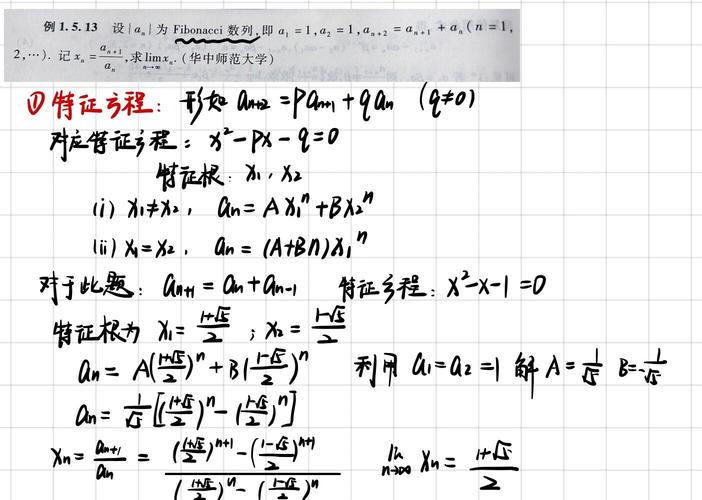 例 1.5.13 设{aₙ}为 Fibonacci 数列,即 a₁ = 1, a₂ = 1, aₙ₊₂ = aₙ₊₁ + aₙ (n = 1,
2,⋯). 记 xₙ = aₙ₊₁/aₙ, 求 lim_{n→∞} xₙ. (华中师范大学)
① 特征方程: 形如 aₙ₊₂ = Paₙ₊₁ + qaₙ (q≠0)
对应特征方程: x² - Px - q = 0
特征根: x₁, x₂
(i) x₁≠x₂, aₙ = Ax₁ⁿ + Bx₂ⁿ
(ii) x₁=x₂, aₙ = (A+Bn)x₁ⁿ
对于此题: aₙ₊₁ = aₙ + aₙ₋₁ 特征方程: x²-x-1=0
特征根为 x₁ = (1+√5)/2 ; x₂ = (1-√5)/2
aₙ = A((1+√5)/2)ⁿ + B((1-√5)/2)ⁿ 利用 a₁=a₂=1 解 A = 1/√5 B = -1/√5
aₙ = 1/√5 [((1+√5)/2)ⁿ - ((1-√5)/2)ⁿ]
xₙ = aₙ₊₁/aₙ = (((1+√5)/2)ⁿ⁺¹ - ((1-√5)/2)ⁿ⁺¹)/(((1+√5)/2)ⁿ - ((1-√5)/2)ⁿ) lim_{n→∞} xₙ = (1+√5)/2